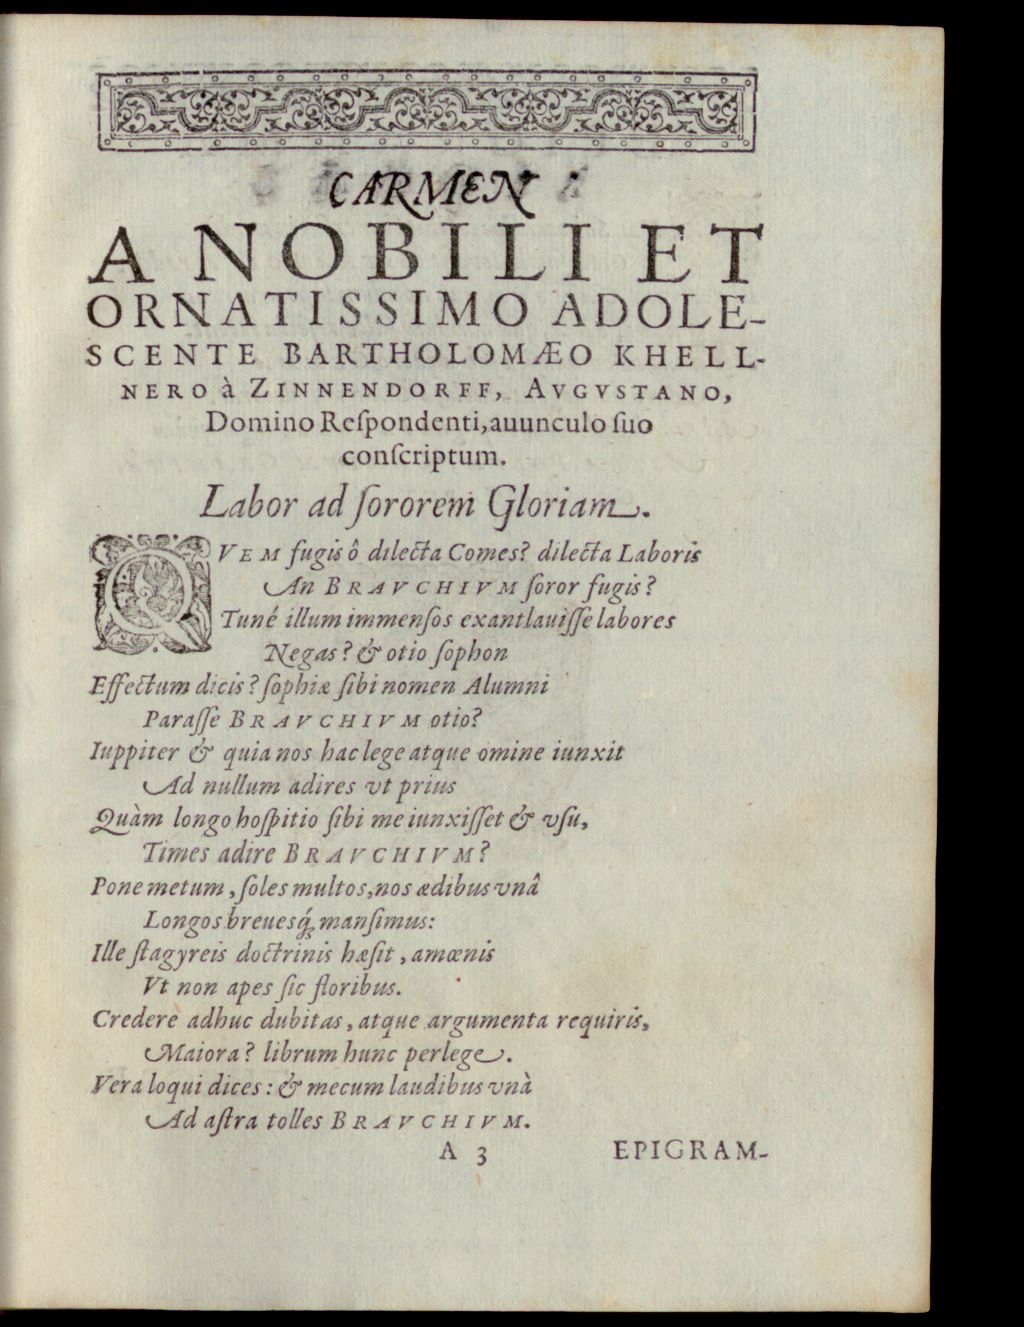 CARMEN
A NOBILI ET
ORNATISSIMO ADOLE-
SCENTE BARTHOLOMÆO KHELL-
NERO à ZINNENDORFF, AVGVSTANO,
Domino Reſpondenti, auunculo ſuo
conſcriptum.
Labor ad ſororem Gloriam.
QVEM fugis ô dilecta Comes? dilecta Laboris
An BRAVCHIVM ſoror fugis?
Tuné illum immenſos exantlauiſſe labores
Negas? & otio ſophon
Effectum dicis? ſophiæ ſibi nomen Alumni
Paraſſe BRAVCHIVM otio?
Iuppiter & quia nos hac lege atque omine iunxit
Ad nullum adires vt prius
Quàm longo hoſpitio ſibi me iunxiſſet & vſu,
Times adire BRAVCHIVM?
Pone metum, ſoles multos, nos ædibus vnâ
Longos breuesq́; manſimus:
Ille ſtagyreis doctrinis hæſit, amœnis
Vt non apes ſic floribus.
Credere adhuc dubitas, atque argumenta requiris,
Maiora? librum hunc perlege.
Vera loqui dices: & mecum laudibus vnà
Ad aſtra tolles BRAVCHIVM.
A 3 EPIGRAM-